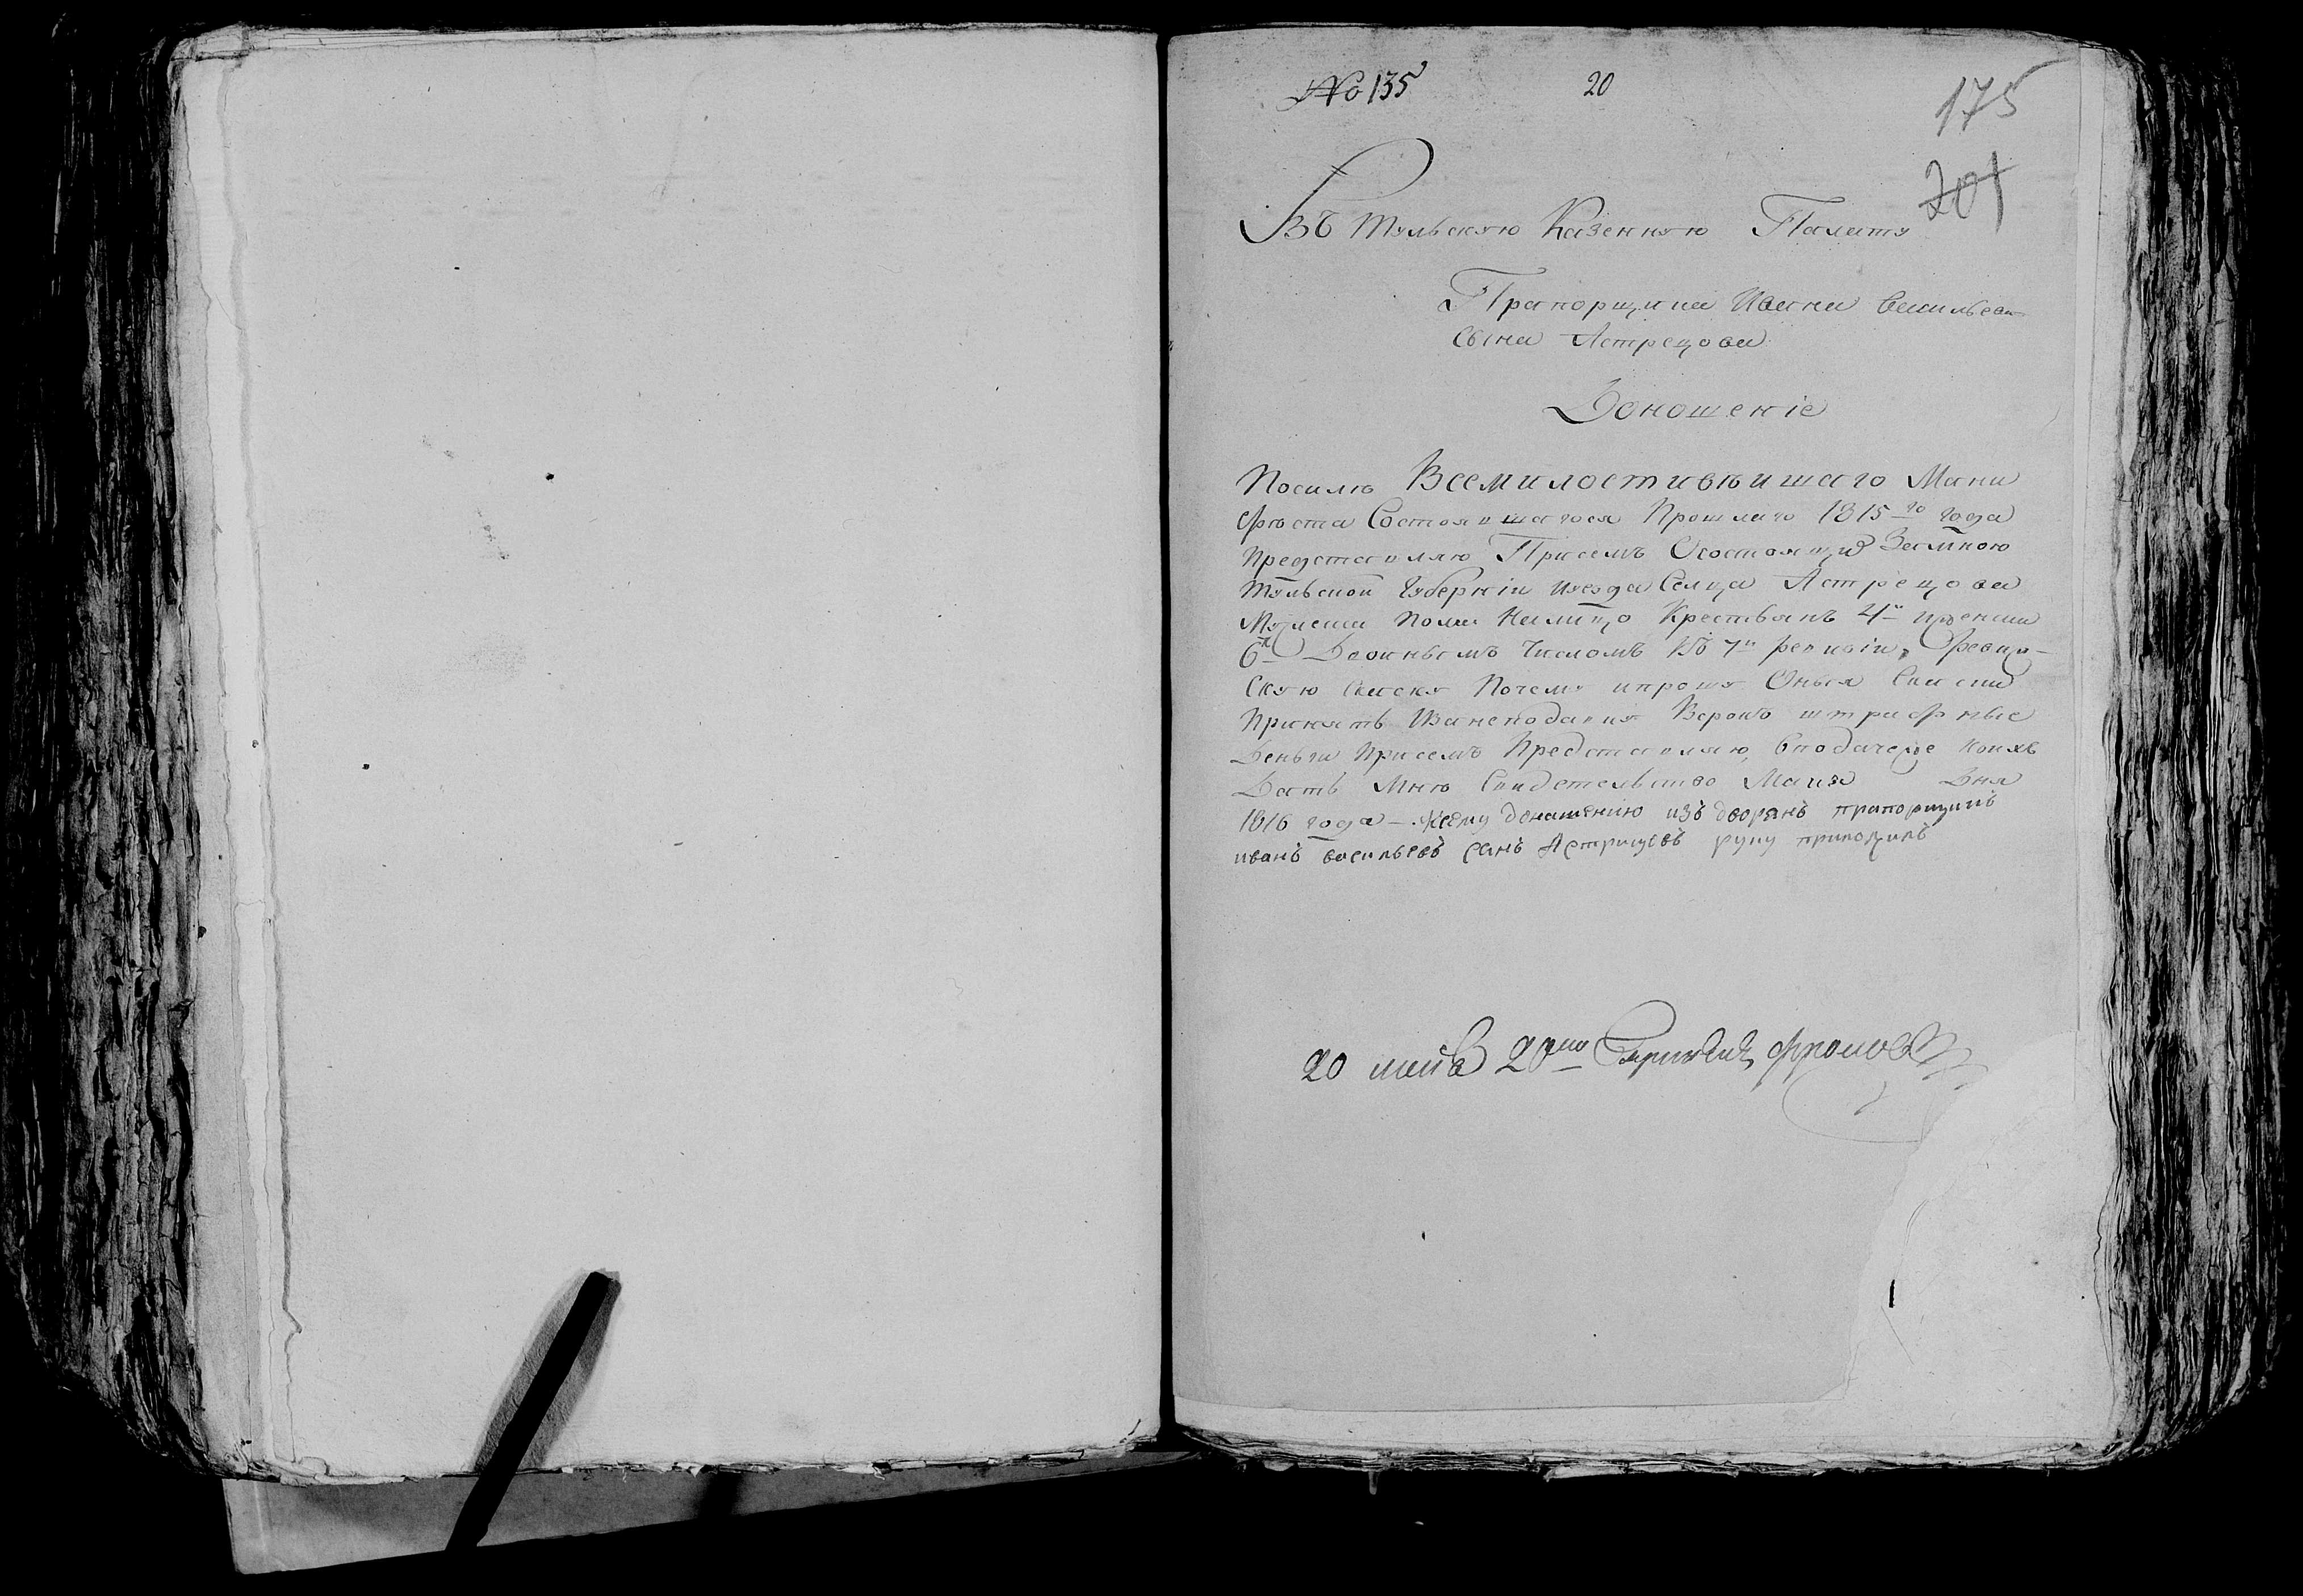 № 135 20
175
201
Въ Тульскую Казенную Палату
Прапорщика Ивана Васильева
Сына Астрецова
Доношеніе
По силѣ Всемилостивѣишаго Мани
фѣста Состоявшагося Прошлаго 1815го года
Представляю Присемъ Осостоящих Замною
Тульской Губерніи иуезда Селца Астрецова
Крестьянъ 4 и женска
6 Двойнымъ Числомъ По 7й ревизіи, Ревиз-
скую Скаску Почему ипрошу Оныя Скаски
Принять Изанеподания Всрокъ штрафные
Деньги Присемъ Представляю, Сподаче же коихъ
Дать Мнѣ Свидетельство Маия Дня
1816 года – ксему доношению изъ дворянъ прапорщикъ
иванъ васильевъ сынъ Астрицовъ руку приложилъ
20 маия 20